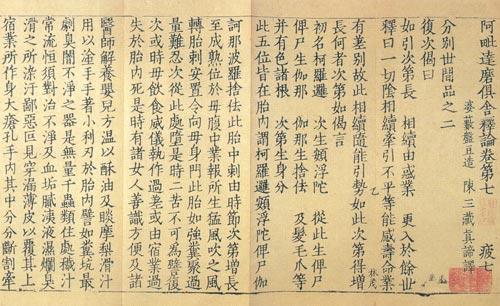 阿毗達磨俱舍釋論卷第七 疲七
婆藪盤豆造 陳三藏真諦譯
分別世間品之二
復次偈曰
如引次第長 相續由惑業 更入於餘世
釋曰一切陰相續牽引不平等能感壽命業
有差別故此相續隨能引勢如此次第得增
長何者次第如偈言
初名柯羅邏 次生頞浮陀 從此生俾尸
俾尸生伽那 伽那生捨佉 及髮毛爪等
并有色諸根 次第生身分
此五位皆在胎內謂柯羅邏頞浮陀俾尸伽
訶那波羅捨佉此胎中刺由時節次第增長
至成熟位於母腹中業報所生猛風吹之風
轉胎刺安置令向母身門此胎如強糞聚過
量難忍次從此處墮是時二苦不可為譬復
次或時母飲食威儀執作過差或由宿業過
失於胎內死是時有諸女人善識方便及能
醫師解養嬰兒方溫以酥油及睒摩梨滑汁
用以塗手手著小利刃於胎內譬如糞坑最
劇臭闇不淨之器是無量千蟲類住處穢汁
常流恒須對治不淨及血垢膩洟液濕爛臭
滑之所淥汙鄙惡叵見穿漏薄皮以覆其上
宿業所作身大瘡孔手內其中分分斷割牽